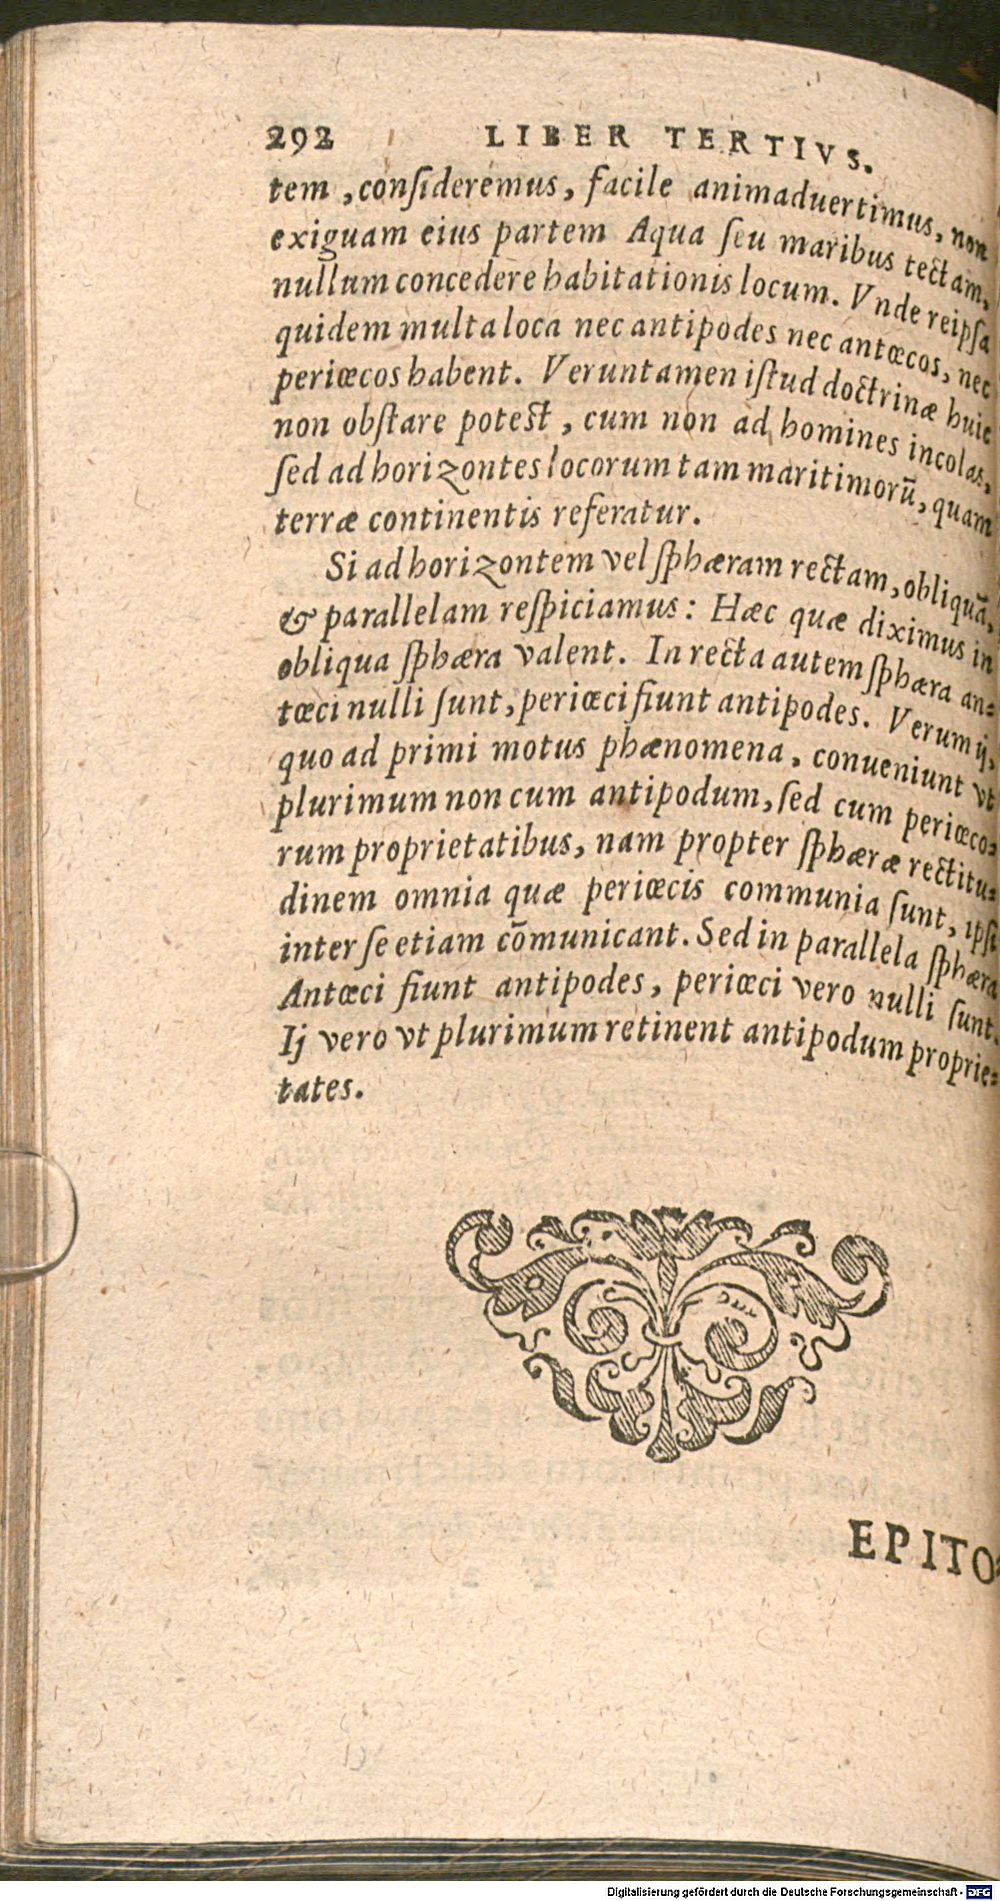 292 LIBER TERTIVS.
tem, conſideremus, facile animaduertimus, non
exiguam eius partem Aqua ſeu maribus tectam,
nullum concedere habitationis locum. Vnde reipſa
quidem multa loca nec antipodes nec antœcos, nec
periœcos habent. Veruntamen iſtud doctrinæ huic
non obſtare poteſt, cum non ad homines incolas,
ſed ad horizontes locorum tam maritimorū, quam
terræ continentis referatur.
Si ad horizontem vel ſphæram rectam, obliquā,
& parallelam reſpiciamus: Hæc quæ diximus in
obliqua ſphæra valent. In recta autem ſphæra an=
tœci nulli ſunt, periœci fiunt antipodes. Verum ij,
quo ad primi motus phænomena, conueniunt vt
plurimum non cum antipodum, ſed cum periœco=
rum proprietatibus, nam propter ſphæræ rectitu=
dinem omnia quæ periœcis communia ſunt, ipſi
inter ſe etiam cōmunicant. Sed in parallela ſphæra
Antœci fiunt antipodes, periœci vero nulli ſunt.
Ij vero vt plurimum retinent antipodum proprie=
tates.
EPITO=
Digitalisierung gefördert durch die Deutsche Forschungsgemeinschaft - DFG